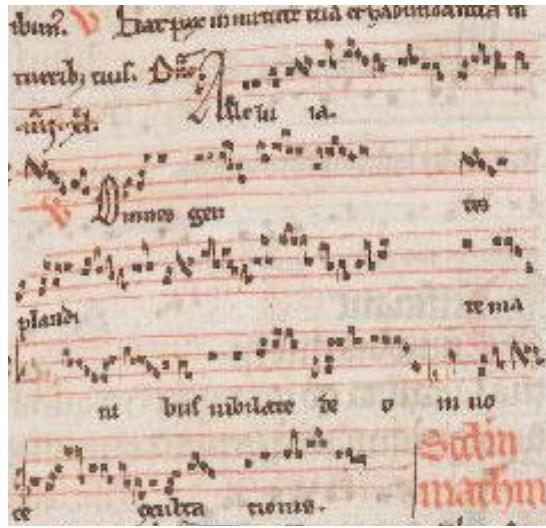 ibus. V Fiat pax in virtute tua et habundantia in
turribus tuis. Dñica
Alleluia.
V Omnes gen tes
plaudi te ma
ni bus iubilate de o in uo
ce exulta tionis. Scdm
mathm